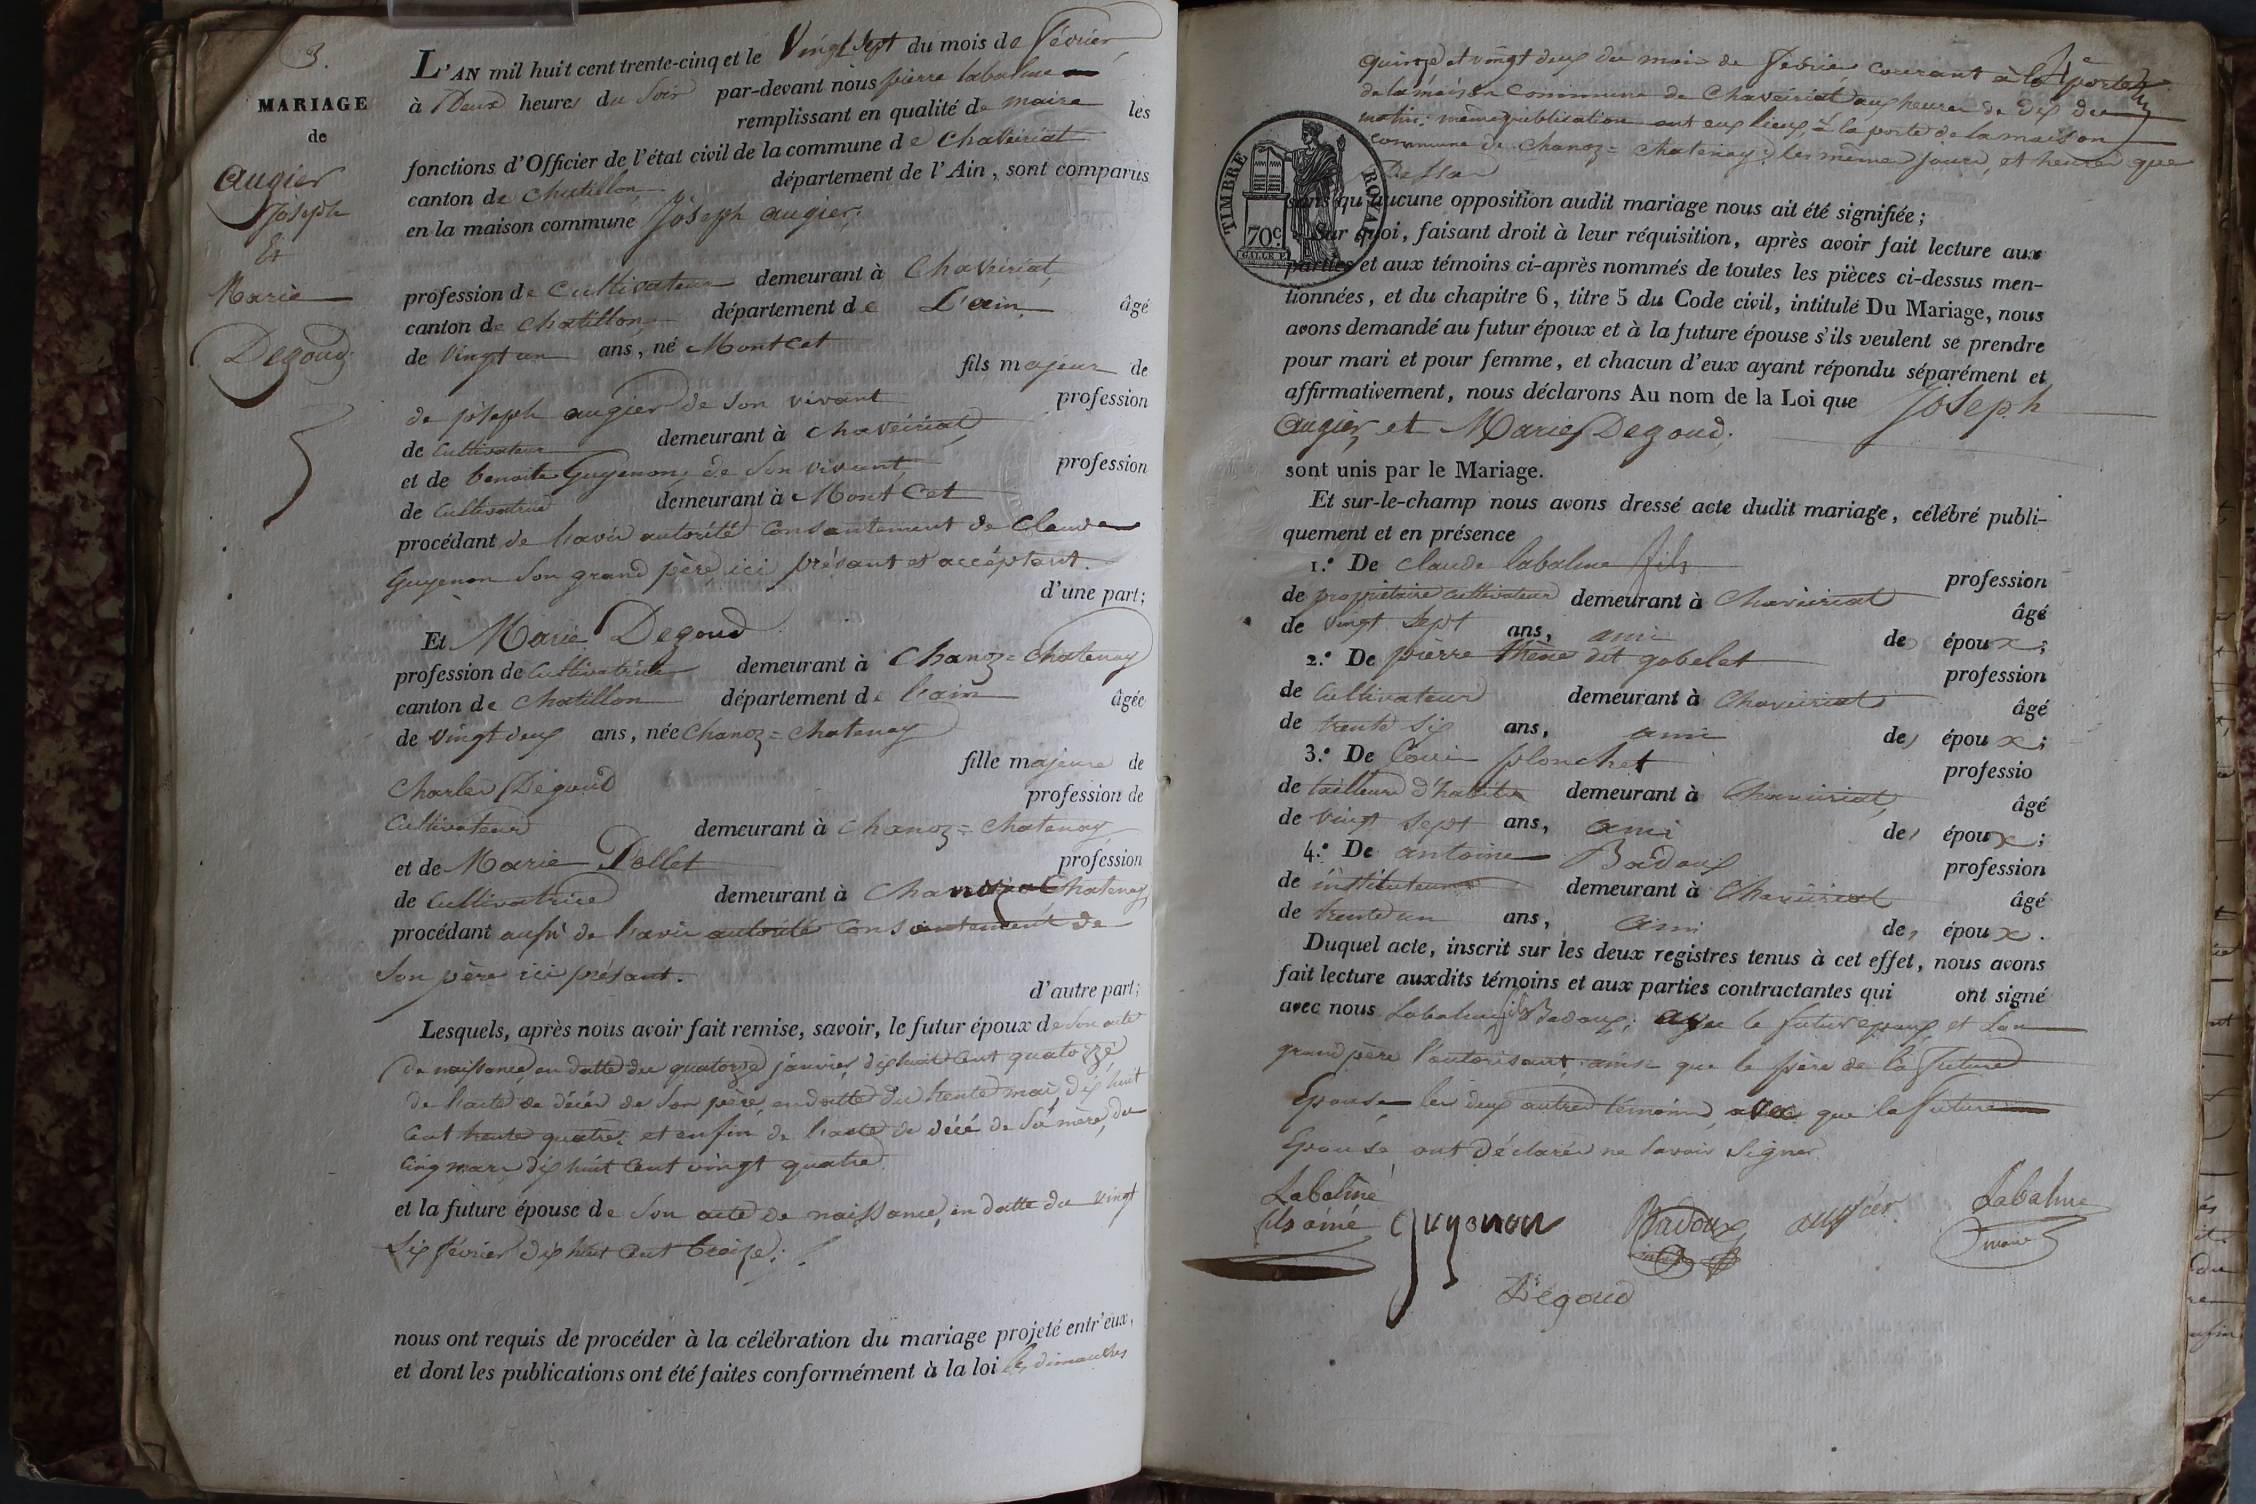 3.
MARIAGE
de
Augier
Joseph
Et
Marie
Degoud
L'AN mil huit cent trente-cinq et le Vingt sept du mois de février
à Deux heures du Soir par-devant nous pierre labalme
remplissant en qualité de maire les
fonctions d'Officier de l'état civil de la commune de Chaveiriat
canton de Chatillon département de l'Ain, sont comparus
en la maison commune Joseph augier,
profession de Cultivateur demeurant à Chaveiriat,
canton de Chatillon département de L'ain, âgé
de Vingt un ans, né Montcet
fils majeur de
de joseph augier de son vivant profession
de Cultivateur demeurant à Chaveiriat
et de benoite Guyenon, de Son vivant, profession
de Cultivatrice demeurant à Mont Cet
procédant de lavis autorité Consantement de Claude
Guyenon Son grand père ici présant et accéptant.
d'une part;
Et Marie Degoud
profession de Cultivatrice demeurant à Chanoz=Chatenay
canton de Chatillon département de lain âgée
de vingt deux ans, née Chanoz=Chatenay
fille majeure de
Charles Degoud profession de
Cultivateur demeurant à Chanoz=Chatenay
et de Marie Pollet profession
de Cultivatrice demeurant à Chanoz Chatenay
procédant aussi de lavis autorité Consentement de
Son père ici présant.
d'autre part;
Lesquels, après nous avoir fait remise, savoir, le futur époux de Son acte
de naissance, en datte du quatorze janvier, dix huit cent quatorze,
de lacte de décés de Son père, en datte du trente mai, dix huit
Cent trente quatre; et enfin de lacte de décé de Sa mère, du
Cinq mars dix huit Cent vingt quatre
et la future épouse de Son acte de naissance, en datte du vingt
Six février dix huit Cent treize;
nous ont requis de procéder à la célébration du mariage projeté entr'eux,
et dont les publications ont été faites conformément à la loi les dimanches
quinze et vingt deux du mois de février courant à la porte
de la maison Commune de Chaveiriat aux heures de dix du
matin; même publication ont eux lieux à la porte de la maison
commune de Chanoz=Chatenay les même jours, et heures que
Dessu
TIMBRE ROYAL
70c.
sans qu'aucune opposition audit mariage nous ait été signifiée;
Sur quoi, faisant droit à leur réquisition, après avoir fait lecture aux
parties et aux témoins ci-après nommés de toutes les pièces ci-dessus men-
tionnées, et du chapitre 6, titre 5 du Code civil, intitulé Du Mariage, nous
avons demandé au futur époux et à la future épouse s'ils veulent se prendre
pour mari et pour femme, et chacun d'eux ayant répondu séparément et
affirmativement, nous déclarons Au nom de la Loi que Joseph
Augier, et Marie Degoud;
sont unis par le Mariage.
Et sur-le-champ nous avons dressé acte dudit mariage, célébré publi-
quement et en présence
1.° De Claude labalme fils profession
de propriétaire cultivateur demeurant à Chaveiriat âgé
de vingt Sept ans, ami de époux;
2.° De pierre dit gobelet profession
de Cultivateur demeurant à Chaveiriat âgé
de trente six ans, ami de, époux;
3.° De Louis plonchet professio
de tailleur d'habits demeurant à Chaveiriat, âgé
de vingt sept ans, ami de, époux;
4.° De antoine Badoux profession
de instituteur demeurant à Chaveiriat âgé
de trente un ans, ami de, époux.
Duquel acte, inscrit sur les deux registres tenus à cet effet, nous avons
fait lecture auxdits témoins et aux parties contractantes qui ont signé
avec nous Labalme fils Badoux; avec le futur epoux, et Son
grand père l'autorisant ainsi que le père de la future
Epouse, les deux autres témoins, que la future
Epouse ont déclarés ne savoir Signer
Labalme
fils ainé Guyonon Badoux augier Labalme
maire
Dégoud